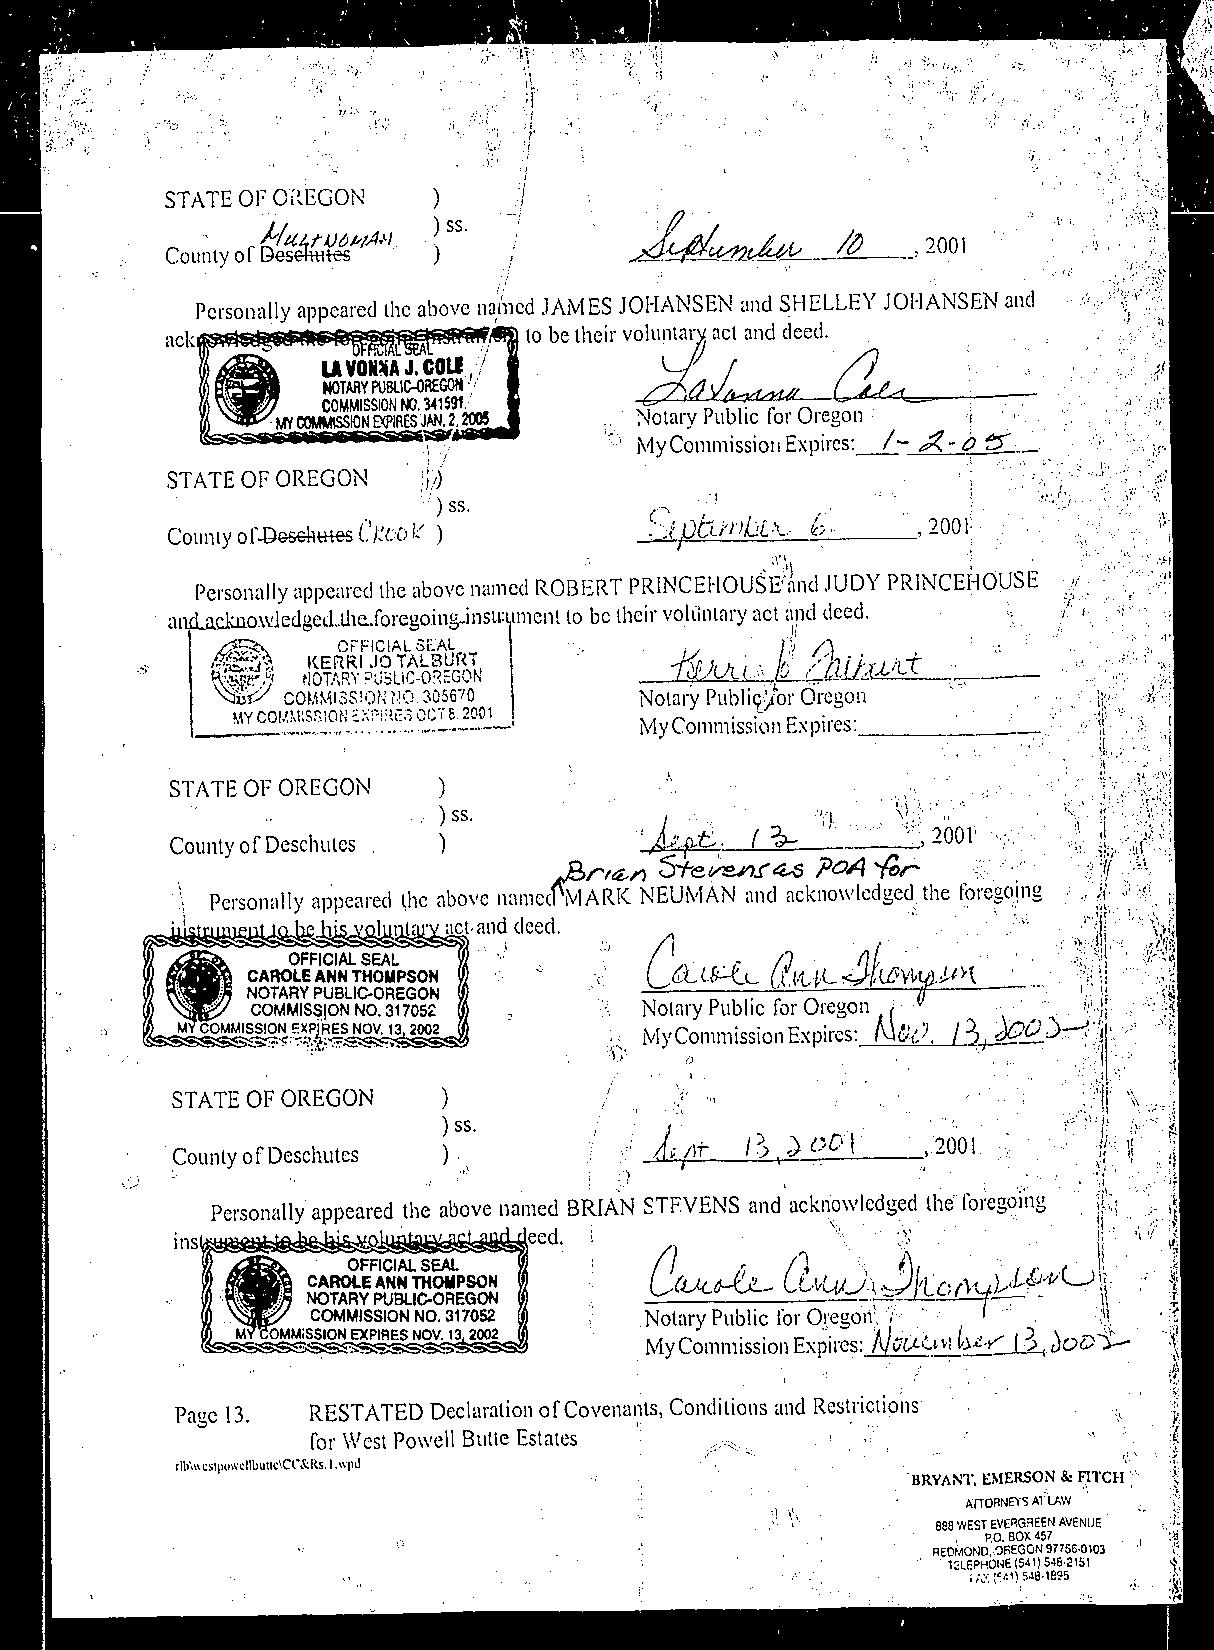 STATE OF OREGON )
) ss.
MULTNOMAH
County of Deschutes ) September 10, 2001
Personally appeared the above named JAMES JOHANSEN and SHELLEY JOHANSEN and
acknowledged the foregoing instrument to be their voluntary act and deed.
OFFICIAL SEAL
LA VONNA J. COLE
NOTARY PUBLIC-OREGON
COMMISSION NO. 341591
MY COMMISSION EXPIRES JAN. 2, 2005
LaVonna Cole
Notary Public for Oregon
My Commission Expires: 1-2-05
STATE OF OREGON )
) ss.
County of Deschutes Crook ) September 6, 2001
Personally appeared the above named ROBERT PRINCEHOUSE and JUDY PRINCEHOUSE
and acknowledged the foregoing instrument to be their voluntary act and deed.
OFFICIAL SEAL
KERRI JO TALBURT
NOTARY PUBLIC-OREGON
COMMISSION NO. 305670
MY COMMISSION EXPIRES OCT 8, 2001
Kerri Jo Talburt
Notary Public for Oregon
My Commission Expires:
STATE OF OREGON )
) ss.
County of Deschutes ) Sept. 13, 2001
Brian Stevens as POA for
Personally appeared the above named MARK NEUMAN and acknowledged the foregoing
instrument to be his voluntary act and deed.
OFFICIAL SEAL
CAROLE ANN THOMPSON
NOTARY PUBLIC-OREGON
COMMISSION NO. 317052
MY COMMISSION EXPIRES NOV. 13, 2002
Carole Ann Thompson
Notary Public for Oregon
My Commission Expires: Nov. 13, 2002
STATE OF OREGON )
) ss.
County of Deschutes ) Sept 13, 2001, 2001
Personally appeared the above named BRIAN STEVENS and acknowledged the foregoing
instrument to be his voluntary act and deed.
OFFICIAL SEAL
CAROLE ANN THOMPSON
NOTARY PUBLIC-OREGON
COMMISSION NO. 317052
MY COMMISSION EXPIRES NOV. 13, 2002
Carole Ann Thompson
Notary Public for Oregon
My Commission Expires: November 13, 2002
Page 13. RESTATED Declaration of Covenants, Conditions and Restrictions
for West Powell Butte Estates
rlb\westpowellbutte\CC&Rs.1.wpd
BRYANT, EMERSON & FITCH
ATTORNEYS AT LAW
888 WEST EVERGREEN AVENUE
P.O. BOX 457
REDMOND, OREGON 97756-0103
TELEPHONE (541) 548-2151
FAX (541) 548-1895